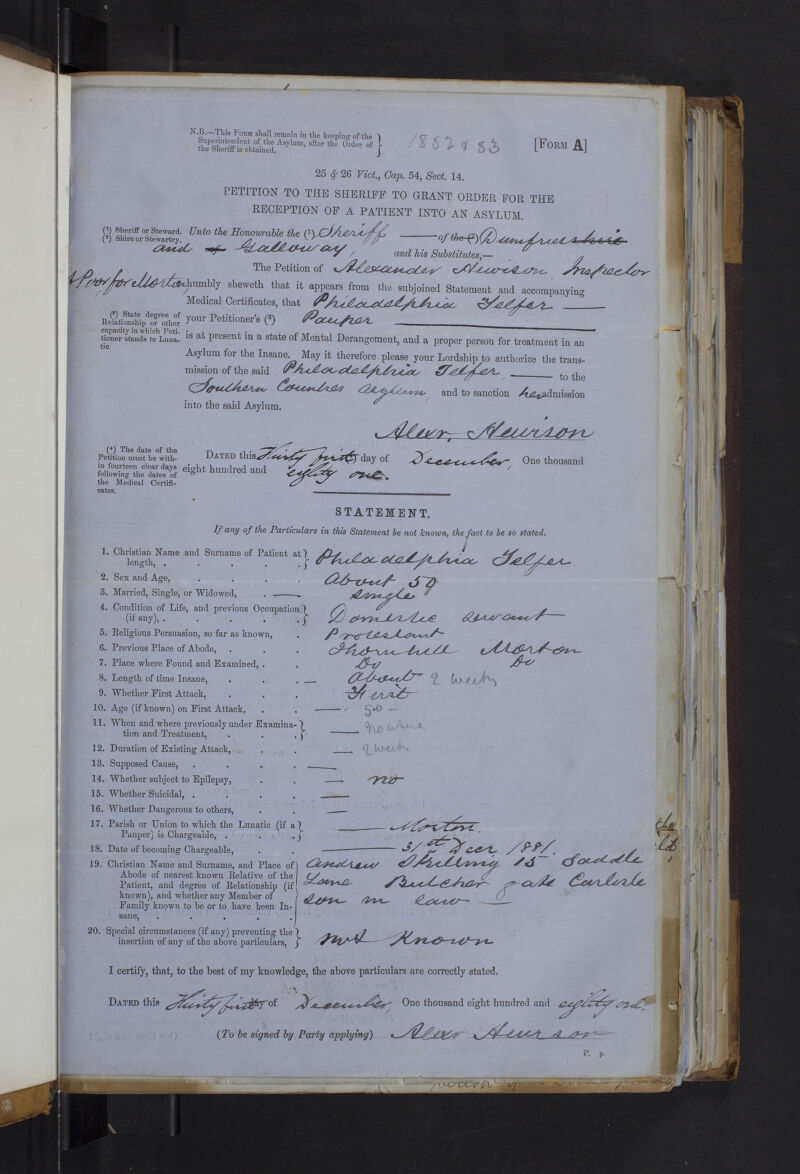 N.B.—This Form shall remain in the keeping of the
Superintendent of the Asylum, after the Order of
the Sheriff is obtained.
1882 & 83
[Form A]
25 & 26 Vict., Cap. 54, Sect. 14.
PETITION TO THE SHERIFF TO GRANT ORDER FOR THE
RECEPTION OF A PATIENT INTO AN ASYLUM.
(1) Sheriff or Steward.
(2) Shire or Stewartry.
Unto the Honourable the (1) Sheriff of the (2) Dumfries shire
and of Galloway, and his Substitutes,—
The Petition of Alexander Hewison, Inspector
of Poor, for Morton, humbly sheweth that it appears from the subjoined Statement and accompanying
Medical Certificates, that Philadelphia Telfer
(3) State degree of
Relationship or other
capacity in which Peti-
tioner stands to Luna-
tic.
your Petitioner's (3) Pauper
is at present in a state of Mental Derangement, and a proper person for treatment in an
Asylum for the Insane. May it therefore please your Lordship to authorize the trans-
mission of the said Philadelphia Telfer to the
Southern Counties Asylum, and to sanction her admission
into the said Asylum.
Alexr. Hewison
(4) The date of the
Petition must be with-
in fourteen clear days
following the dates of
the Medical Certifi-
cates.
Dated this Thirty first day of December, One thousand
eight hundred and eighty one.
STATEMENT.
If any of the Particulars in this Statement be not known, the fact to be so stated.
1. Christian Name and Surname of Patient at
length, . . . . . Philadelphia Telfer
2. Sex and Age, . . . . About 50
3. Married, Single, or Widowed, . single
4. Condition of Life, and previous Occupation
(if any), . . . . . Domestic servant
5. Religious Persuasion, so far as known, . Protestant
6. Previous Place of Abode, . . . Thornhill Morton
7. Place where Found and Examined, . . Do Do
8. Length of time Insane, . . . About 2 weeks
9. Whether First Attack, . . . First
10. Age (if known) on First Attack, . . — 50 —
11. When and where previously under Examina-
tion and Treatment, . . . . — Nowhere
12. Duration of Existing Attack, . . . — 2 week
13. Supposed Cause, . . . . —
14. Whether subject to Epilepsy, . . — no
15. Whether Suicidal, . . . . —
16. Whether Dangerous to others, . . —
17. Parish or Union to which the Lunatic (if a
Pauper) is Chargeable, . . . . — Morton.
18. Date of becoming Chargeable, . . — 31st Decr 1881.
19. Christian Name and Surname, and Place of
Abode of nearest known Relative of the
Patient, and degree of Relationship (if
known), and whether any Member of
Family known to be or to have been In-
sane, . . . . . .
Andrew Skilling 15 Saddle
Lane Butcher gate Carlisle
son in law —
20. Special circumstances (if any) preventing the
insertion of any of the above particulars, not Known
I certify, that, to the best of my knowledge, the above particulars are correctly stated.
Dated this Thirty first of December, One thousand eight hundred and eighty one.
(To be signed by Party applying) Alexr Hewison
P. p.